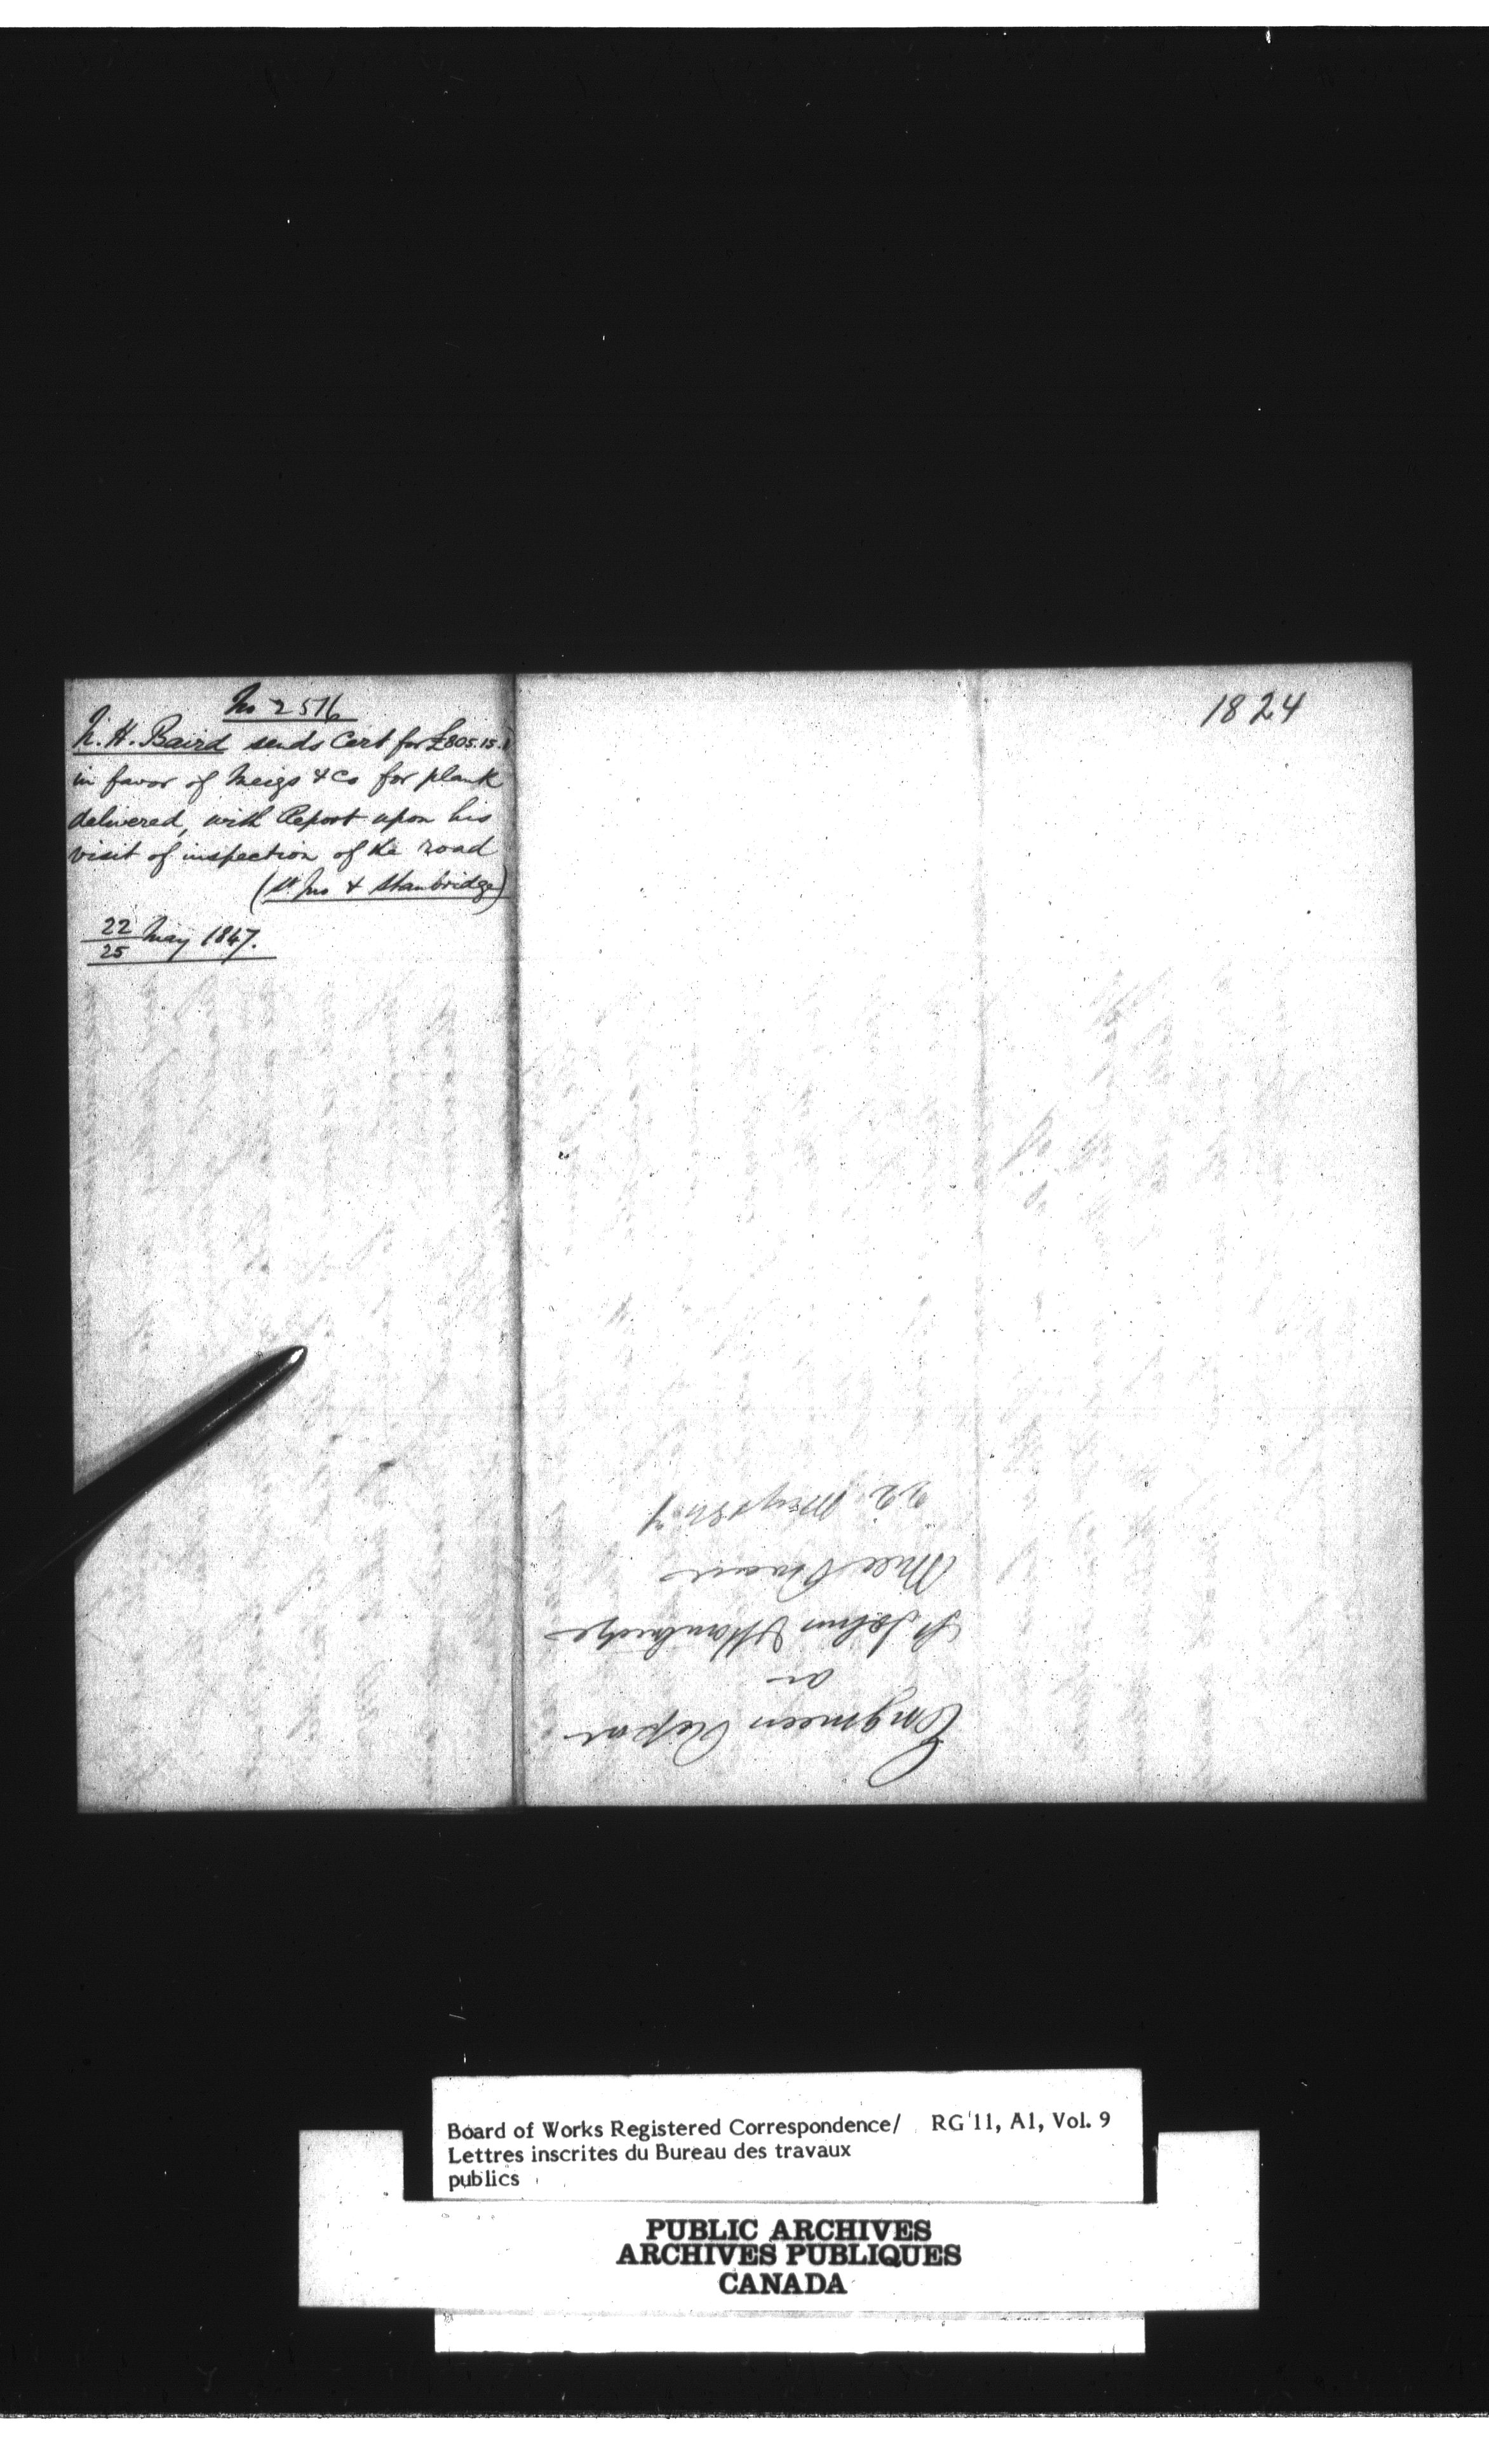 No 2576
N. H. Baird sends Cert for £805.15.
in favor of Meigs & Co for plank
delivered, with Report upon his
visit of inspection of the road
(St Jns & Stanbridge)
22/25 May 1847.
1824
Engineers Report
on
St Johns & Stanbridge
22 May 1847
Board of Works Registered Correspondence/ RG 11, A1, Vol. 9
Lettres inscrites du Bureau des travaux
publics
PUBLIC ARCHIVES
ARCHIVES PUBLIQUES
CANADA